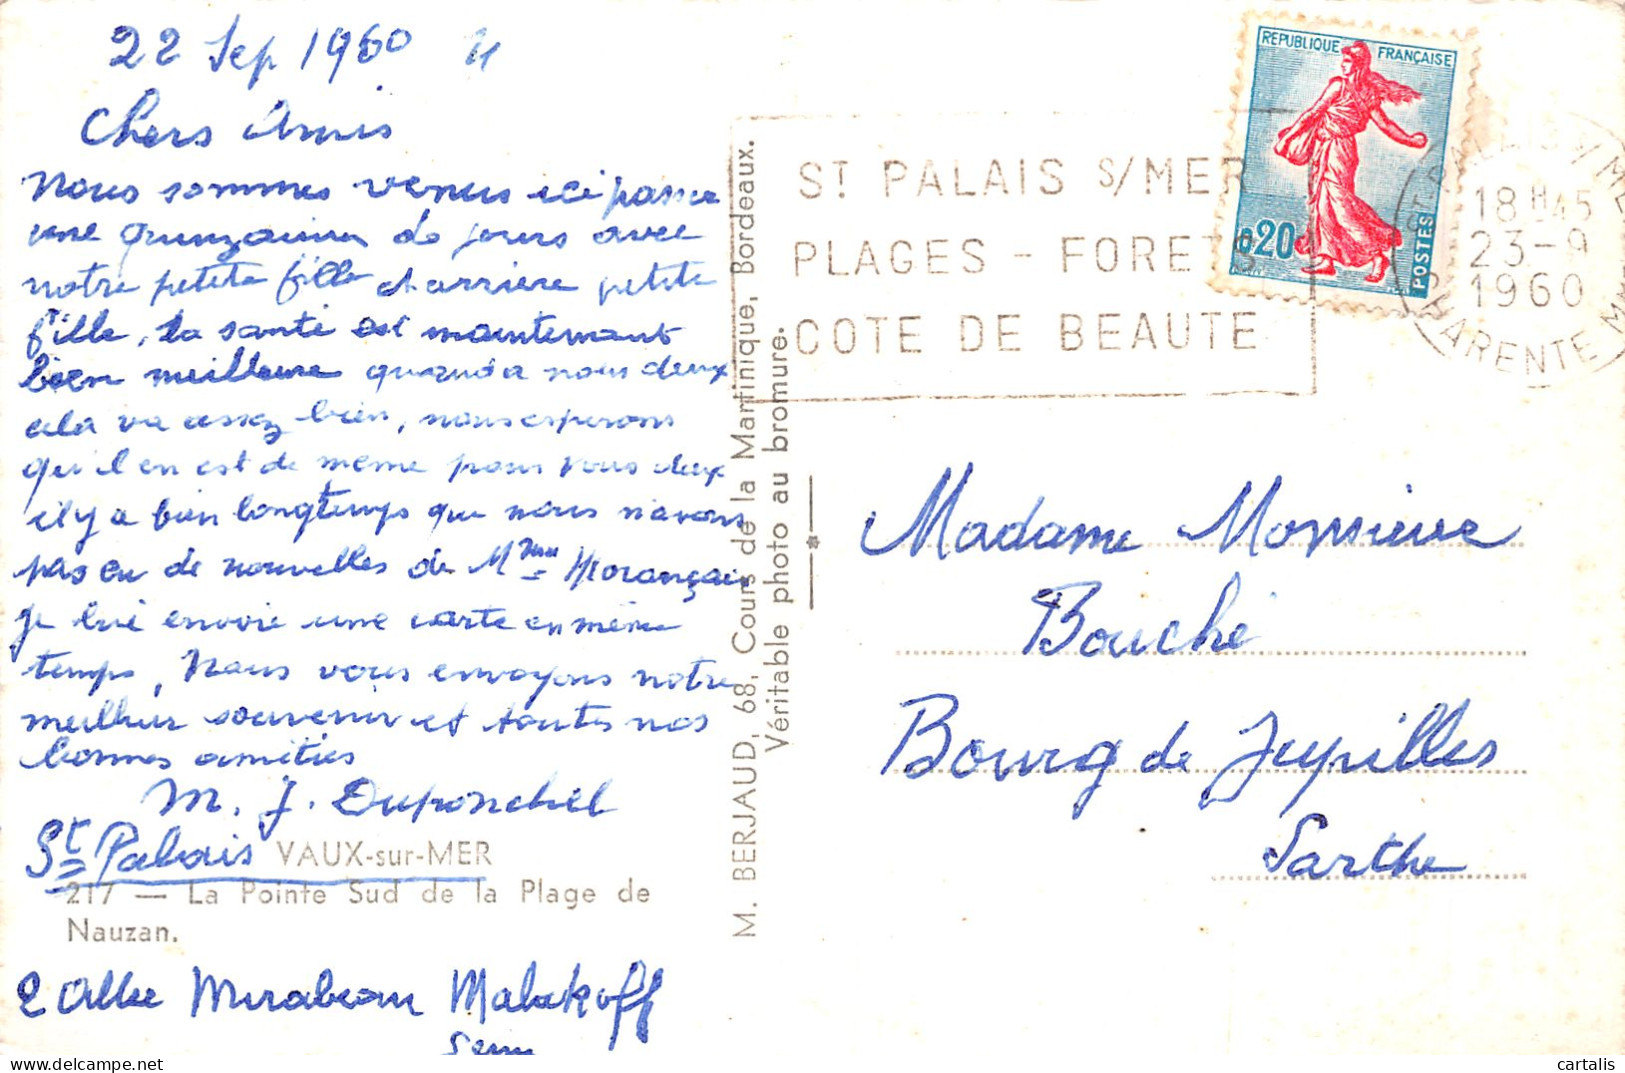 22 Sep 1960
Chers Amis
Nous sommes venus ici passer
une quinzaine de jours avec
notre petite fille et arrière petite
fille, la santé est maintenant
bien meilleure quand a nous deux
cela va assez bien, nous esperons
qu'il en est de meme pour vous deux
il y a bien longtemps que nous n'avons
pas eu de nouvelles de Mme Morançais
je lui envoie une carte en même
temps, Nous vous envoyons notre
meilleur souvenir et toutes nos
bonnes amitiés
M. J. Duponchel
St Palais VAUX-sur-MER
217 — La Pointe Sud de la Plage de
Nauzan.
2 Allée Mirabeau Malakoff
Seine
M. BERJAUD, 68, Cours de la Martinique, Bordeaux.
Véritable photo au bromure.
ST PALAIS S/MER
PLAGES - FORETS
COTE DE BEAUTE
REPUBLIQUE FRANÇAISE
0,20
POSTES
18 H 45
23-9
1960
CHARENTE MME
Madame Monsieur
Bouché
Bourg de Jupilles
Sarthe
cartalis